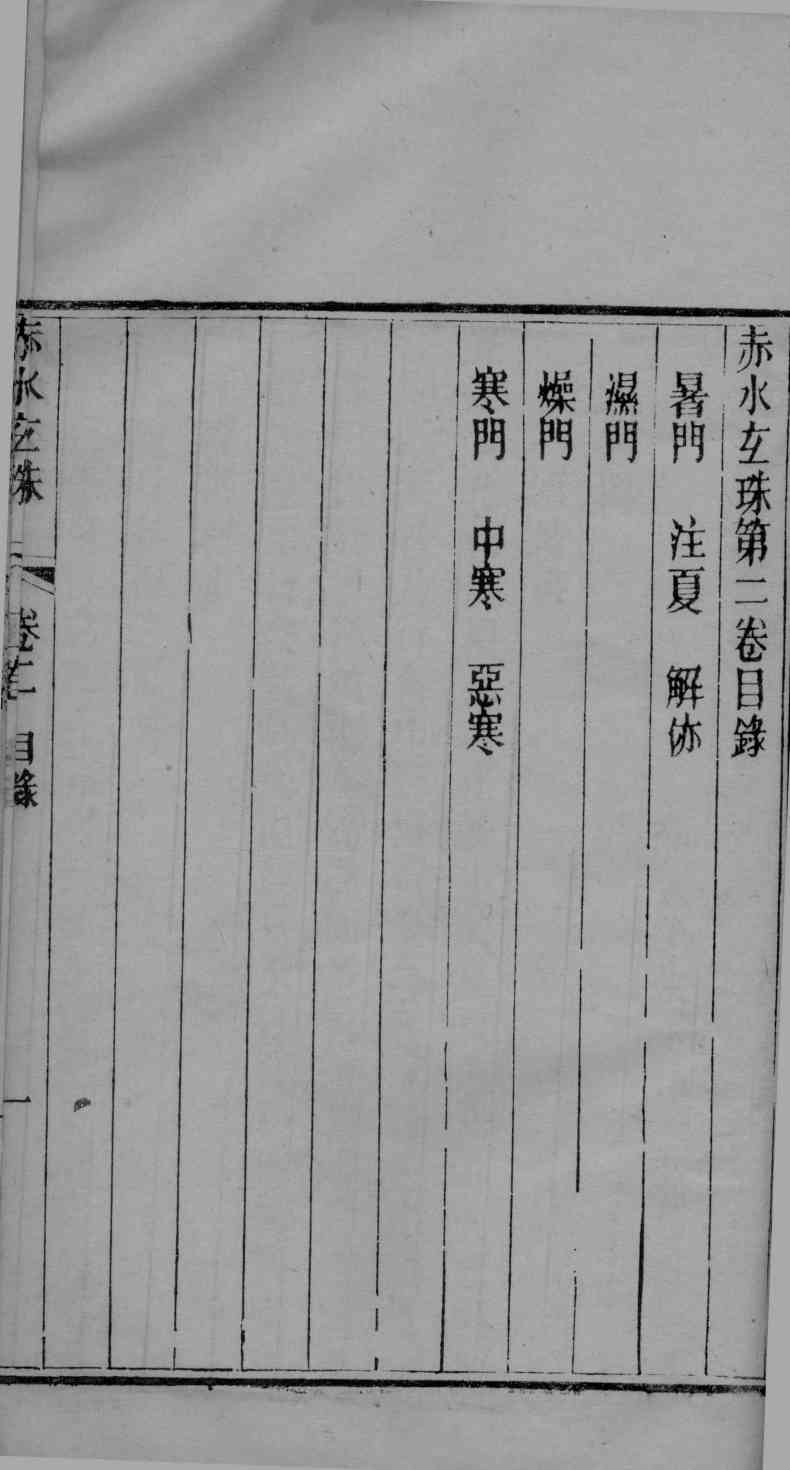 赤水玄珠第二卷目錄
暑門　注夏　解㑊
濕門
燥門
寒門　中寒　惡寒
赤水玄珠　卷二　目錄　一